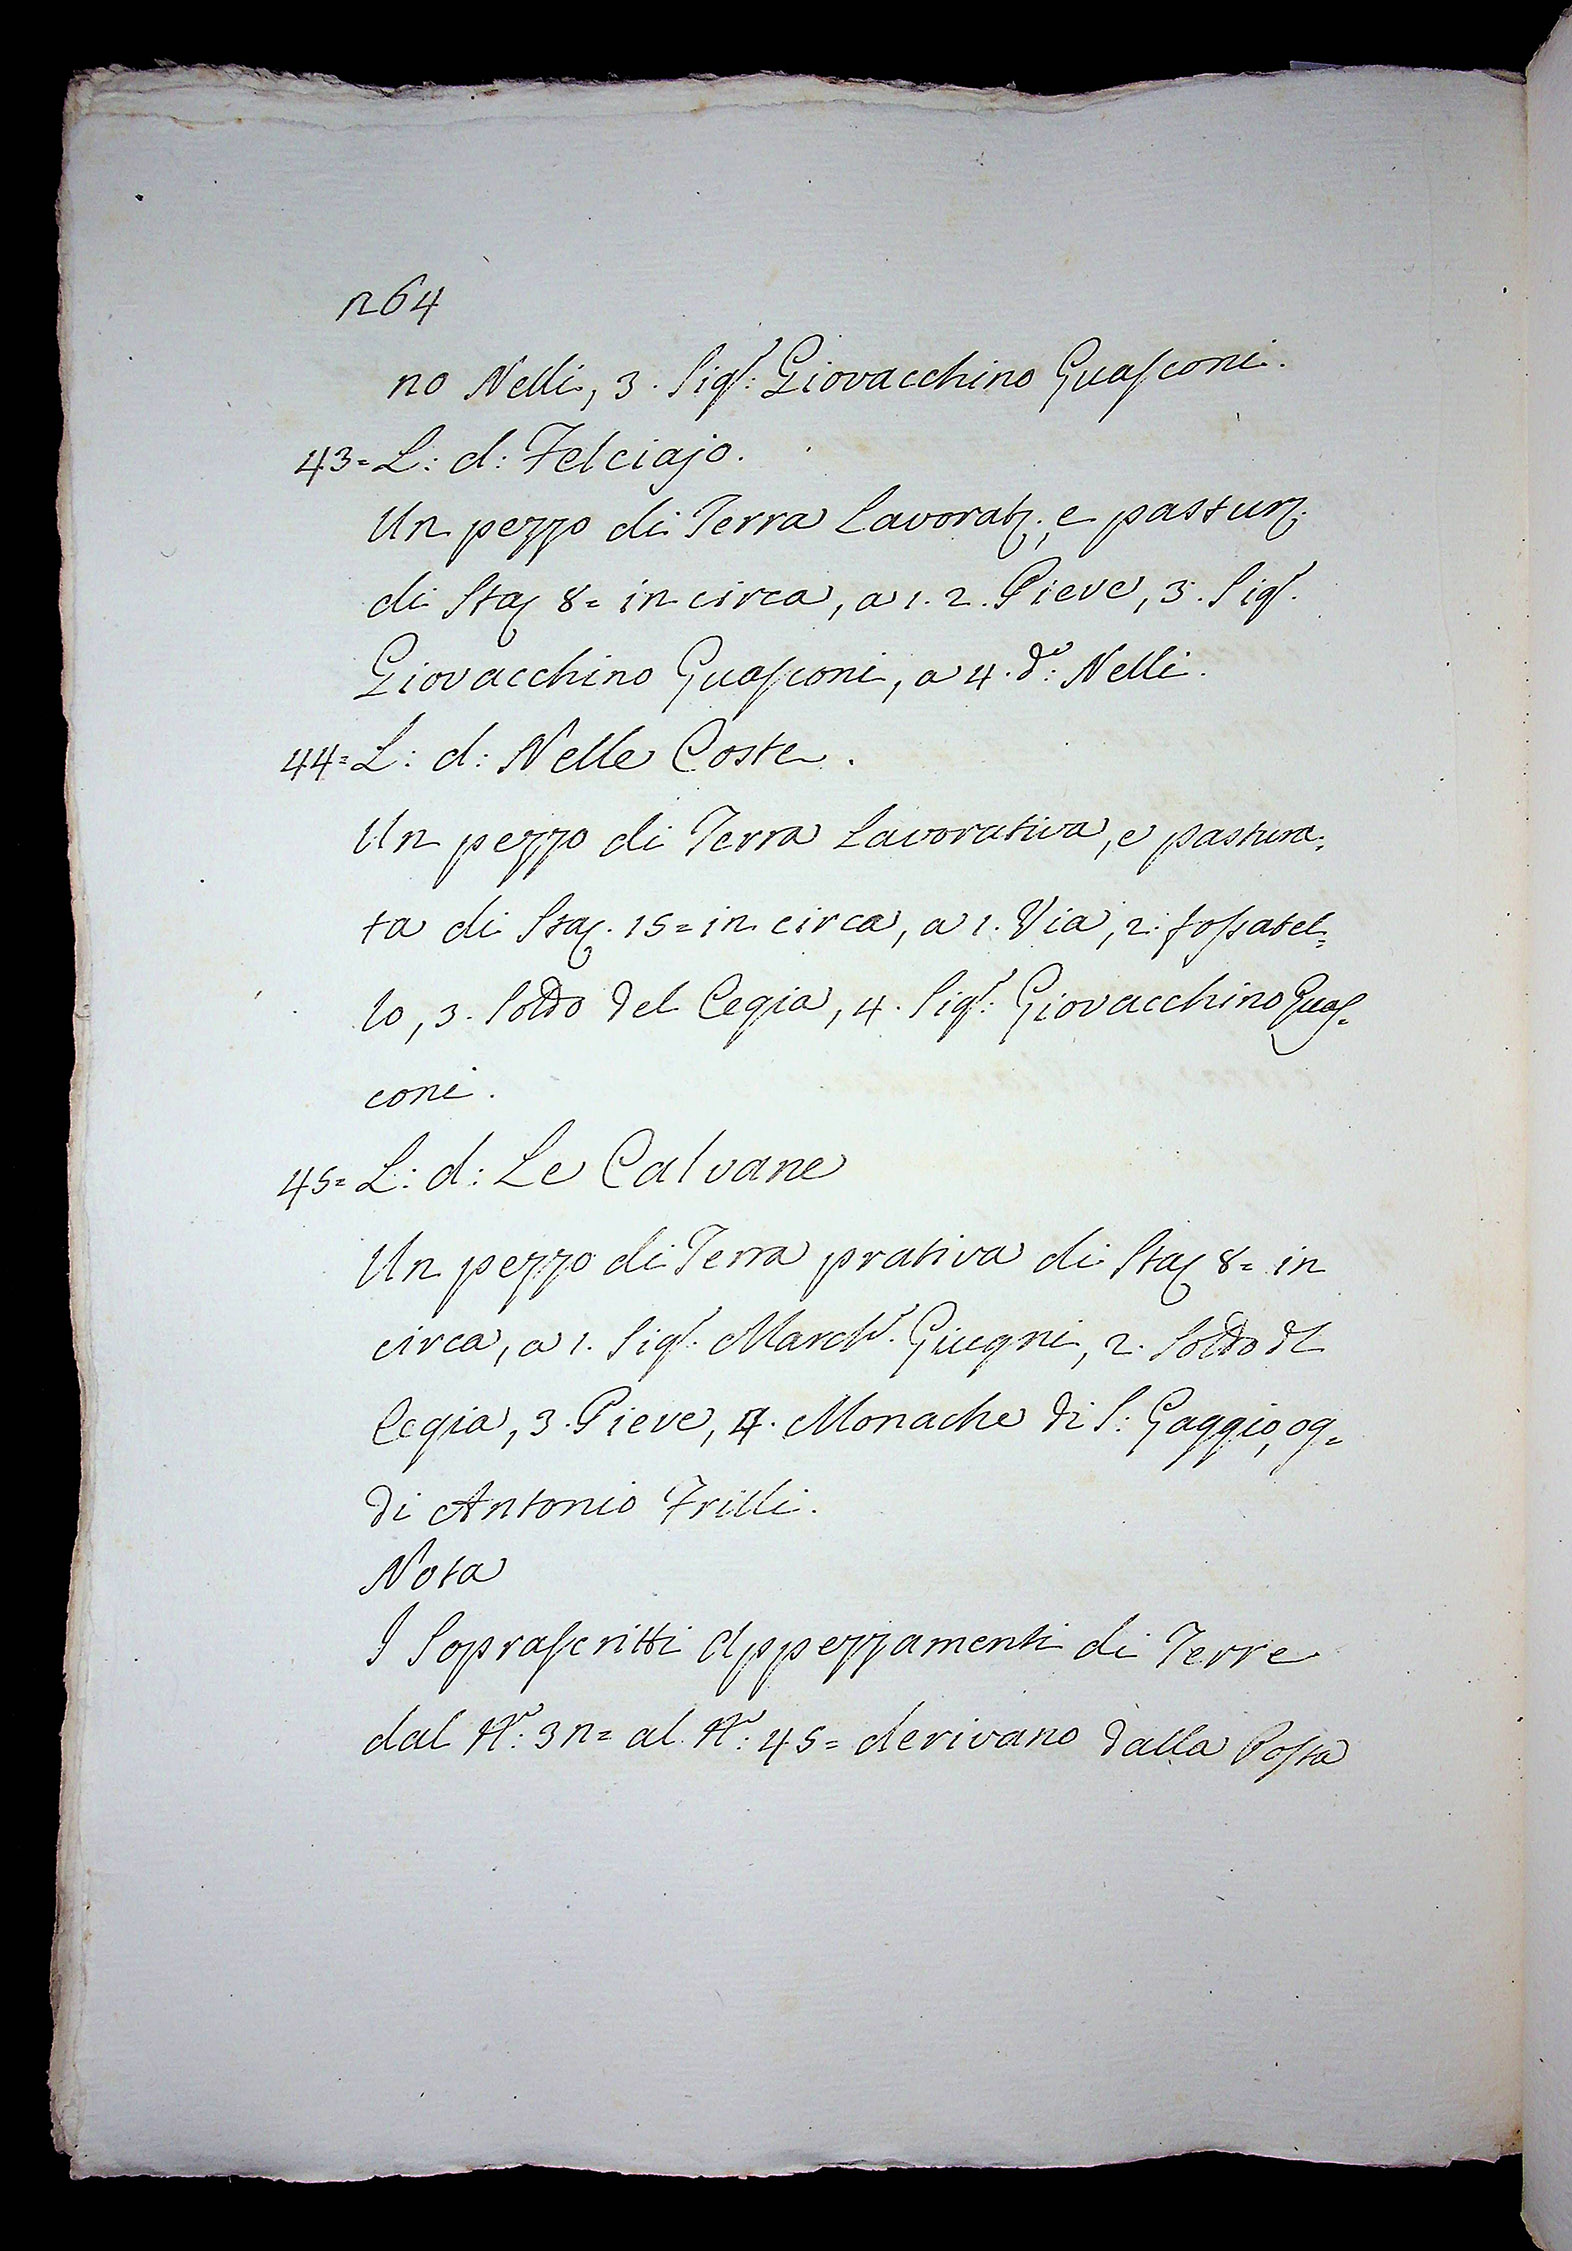 n64
no Nelli, 3. Sigr: Giovacchino Guasconi.
43= L: d: Felciajo.
Un pezzo di Terra Lavorat:, e pastur:
di Sta: 8= in circa, a 1. 2. Pieve, 3. Sigr.
Giovacchino Guasconi, a 4. do: Nelli.
44= L: d: Nelle Coste.
Un pezzo di Terra Lavorativa, e pastura=
ta di Sta: 15= in circa, a 1. Via, 2. fossatel=
lo, 3. Soldo del Cegia, 4. Sigr: Giovacchino Guas=
coni.
45= L: d: Le Calvane
Un pezzo di Terra prativa di Sta: 8= in
circa, a 1. Sigr. March. Giugni, 2. Soldo dl
Cegia, 3. Pieve, 4. Monache di S: Gaggio, og=
di Antonio Frilli.
Nota
I Soprascritti Appezzamenti di Terre
dal No: 3n= al No: 45= derivano dalla Posta